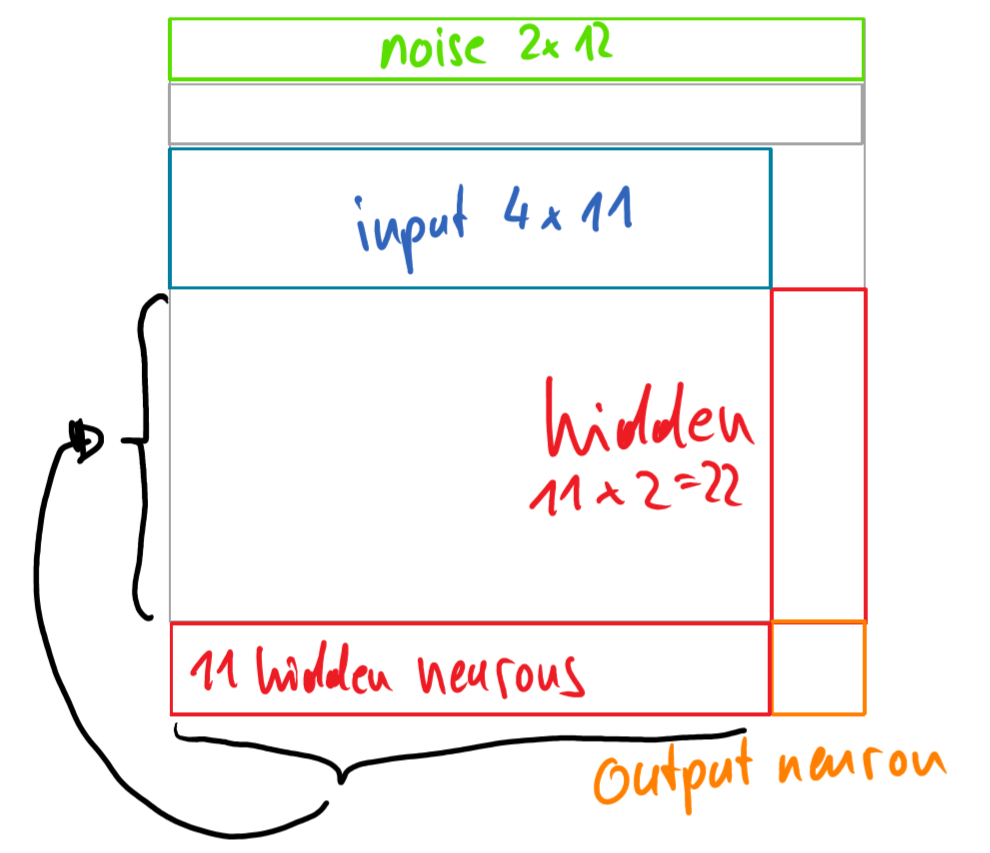 noise 2x12
input 4x11
hidden
11x2=22
11 hidden neurons
Output neuron